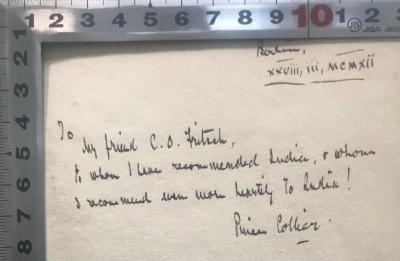 1 2 3 4 5 6 7 8 9 10 1 2 3
JIS
1
2
3
4
5
6
7
8
Berlin,
XXVIII, iii, MCMXII
To
My friend C. O. Fritsch,
to whom I have recommended India, & whom
I recommend even more heartily to India!
Price Collier.